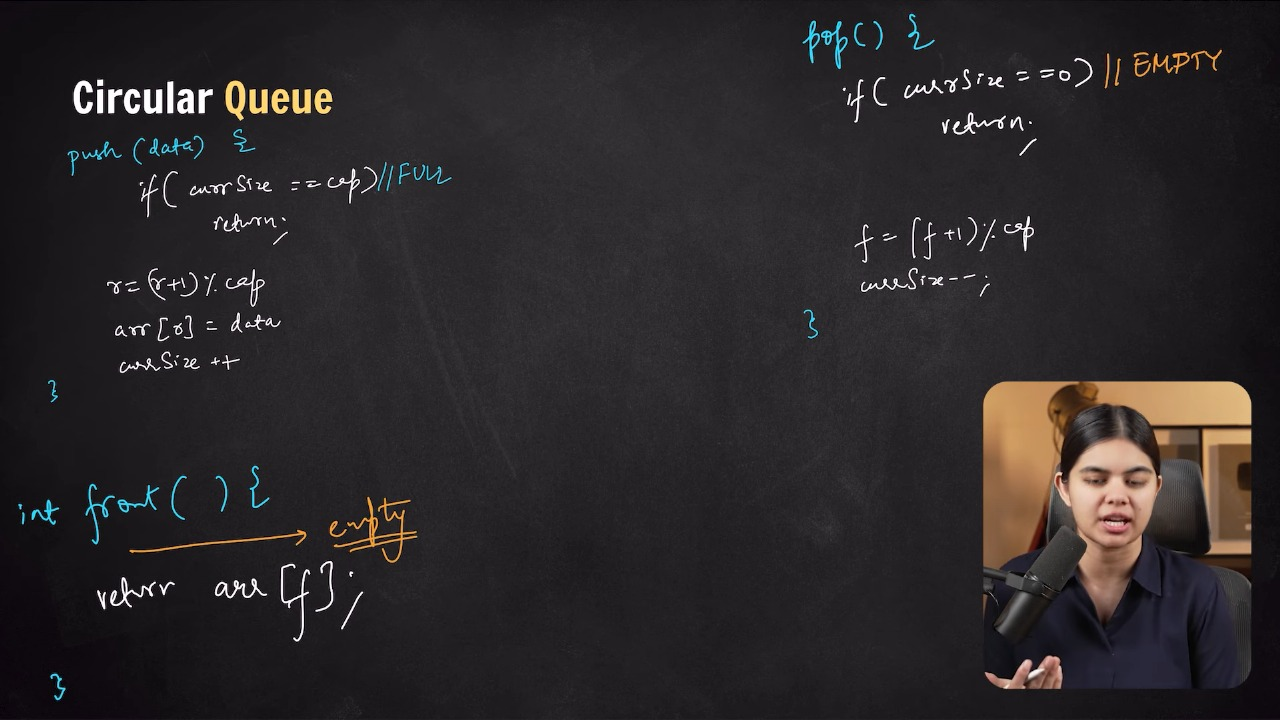 Circular Queue
push (data) {
if( currSize == cap) //FULL
return;
r = (r+1) % cap
arr[r] = data
currSize ++
}
int front( ) {
empty
return arr[f];
}
pop() {
if( currSize == 0) // EMPTY
return;
f = (f+1) % cap
currSize--;
}